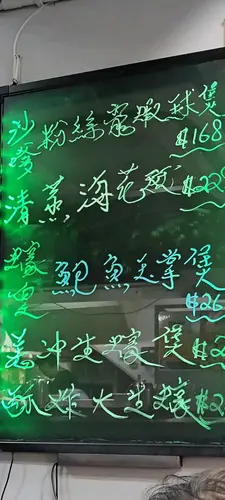 沙爹粉絲蝦球煲 $168
清蒸海花蟹 $228
蠔皇鮑魚掌煲 $26
姜冲生蠔煲 $2
酥炸大生蠔 $2